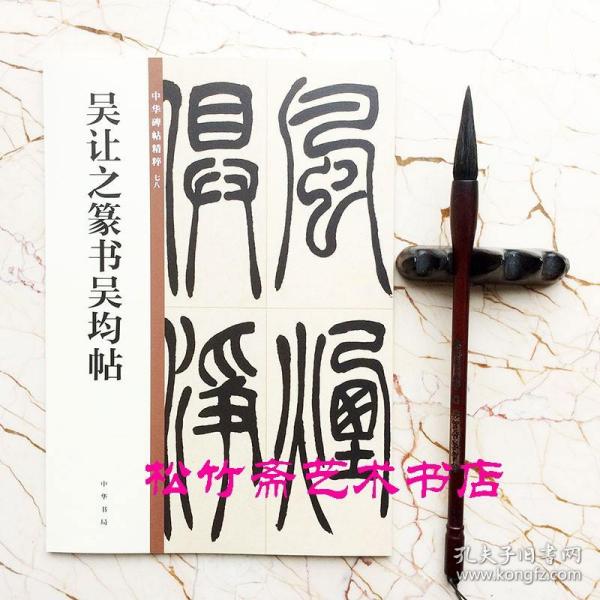 吴让之篆书吴均帖
中华碑帖精粹 七八
風煙
俱淨
中华书局
松竹斋艺术书店
孔夫子旧书网
www.kongfz.com